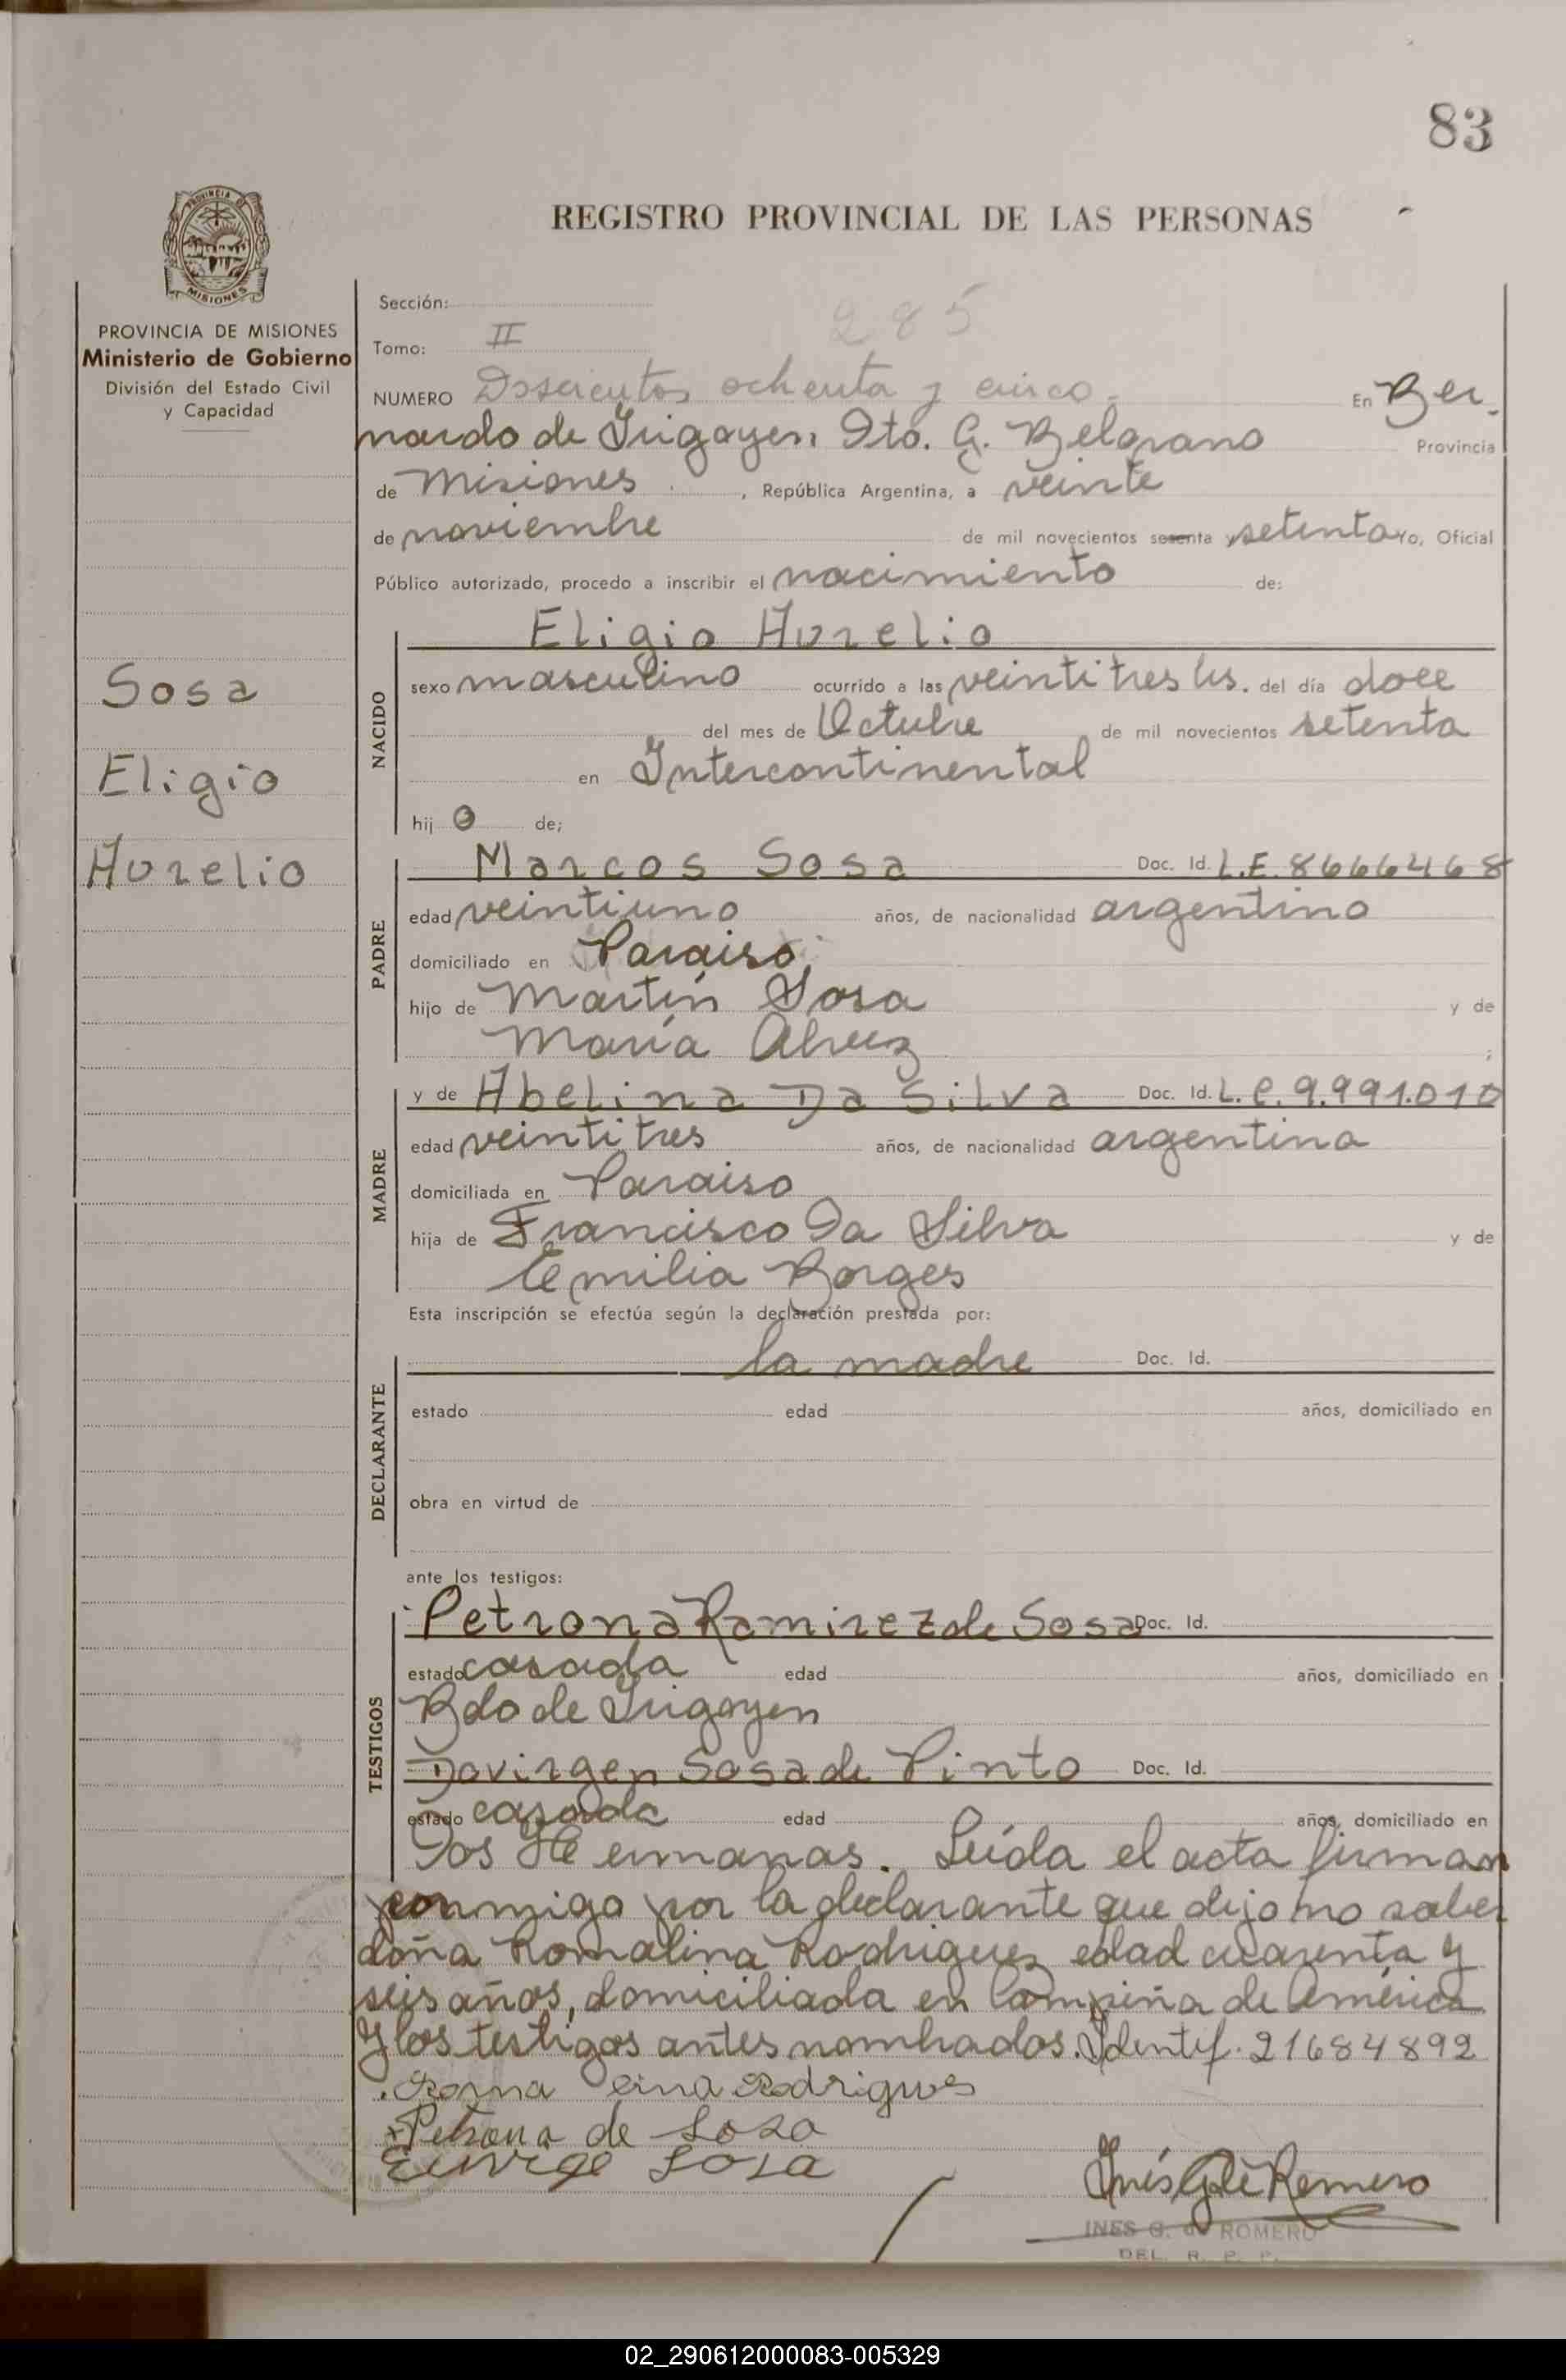 83
REGISTRO PROVINCIAL DE LAS PERSONAS
PROVINCIA DE MISIONES
Ministerio de Gobierno
División del Estado Civil
y Capacidad
Sosa
Eligio
Aurelio
Sección:
285
Tomo: II
NUMERO Doscientos ochenta y cinco - En Ber-
nardo de Irigoyen, Dto. G. Belgrano Provincia
de Misiones, República Argentina, a veinte
de noviembre de mil novecientos sesenta y setenta Yo, Oficial
Público autorizado, procedo a inscribir el nacimiento de:
NACIDO
Eligio Aurelio
sexo masculino ocurrido a las veintitres hs. del día doce
del mes de Octubre de mil novecientos setenta
en Intercontinental
hij o de;
PADRE
Marcos Sosa Doc. Id. L.E. 8666468
edad veintiuno años, de nacionalidad argentino
domiciliado en Paraiso
hijo de Martín Sosa y de
María Alvez ;
MADRE
y de Abelina Da Silva Doc. Id. L.C. 9.991.010
edad veintitres años, de nacionalidad argentina
domiciliada en Paraiso
hija de Francisco Da Silva y de
Emilia Borges
Esta inscripción se efectúa según la declaración prestada por:
DECLARANTE
la madre Doc. Id.
estado edad años, domiciliado en
obra en virtud de
ante los testigos:
TESTIGOS
Petrona Ramirez de Sosa Doc. Id.
estado casada edad años, domiciliado en
Bdo de Irigoyen
Dovirgen Sosa de Pinto Doc. Id.
estado casada edad años, domiciliado en
Dos Hermanas. Leída el acta firman
conmigo por la declarante que dijo no saber
doña Romalina Rodriguez edad cuarenta y
seis años, domiciliada en Campiña de América
y los testigos antes nombrados. Identif. 21684892
Roma lina Rodrigues
Petrona de Sosa
Sosa
Inés G de Romero
INES G. de ROMERO
DEL. R. P. P.
02_290612000083-005329